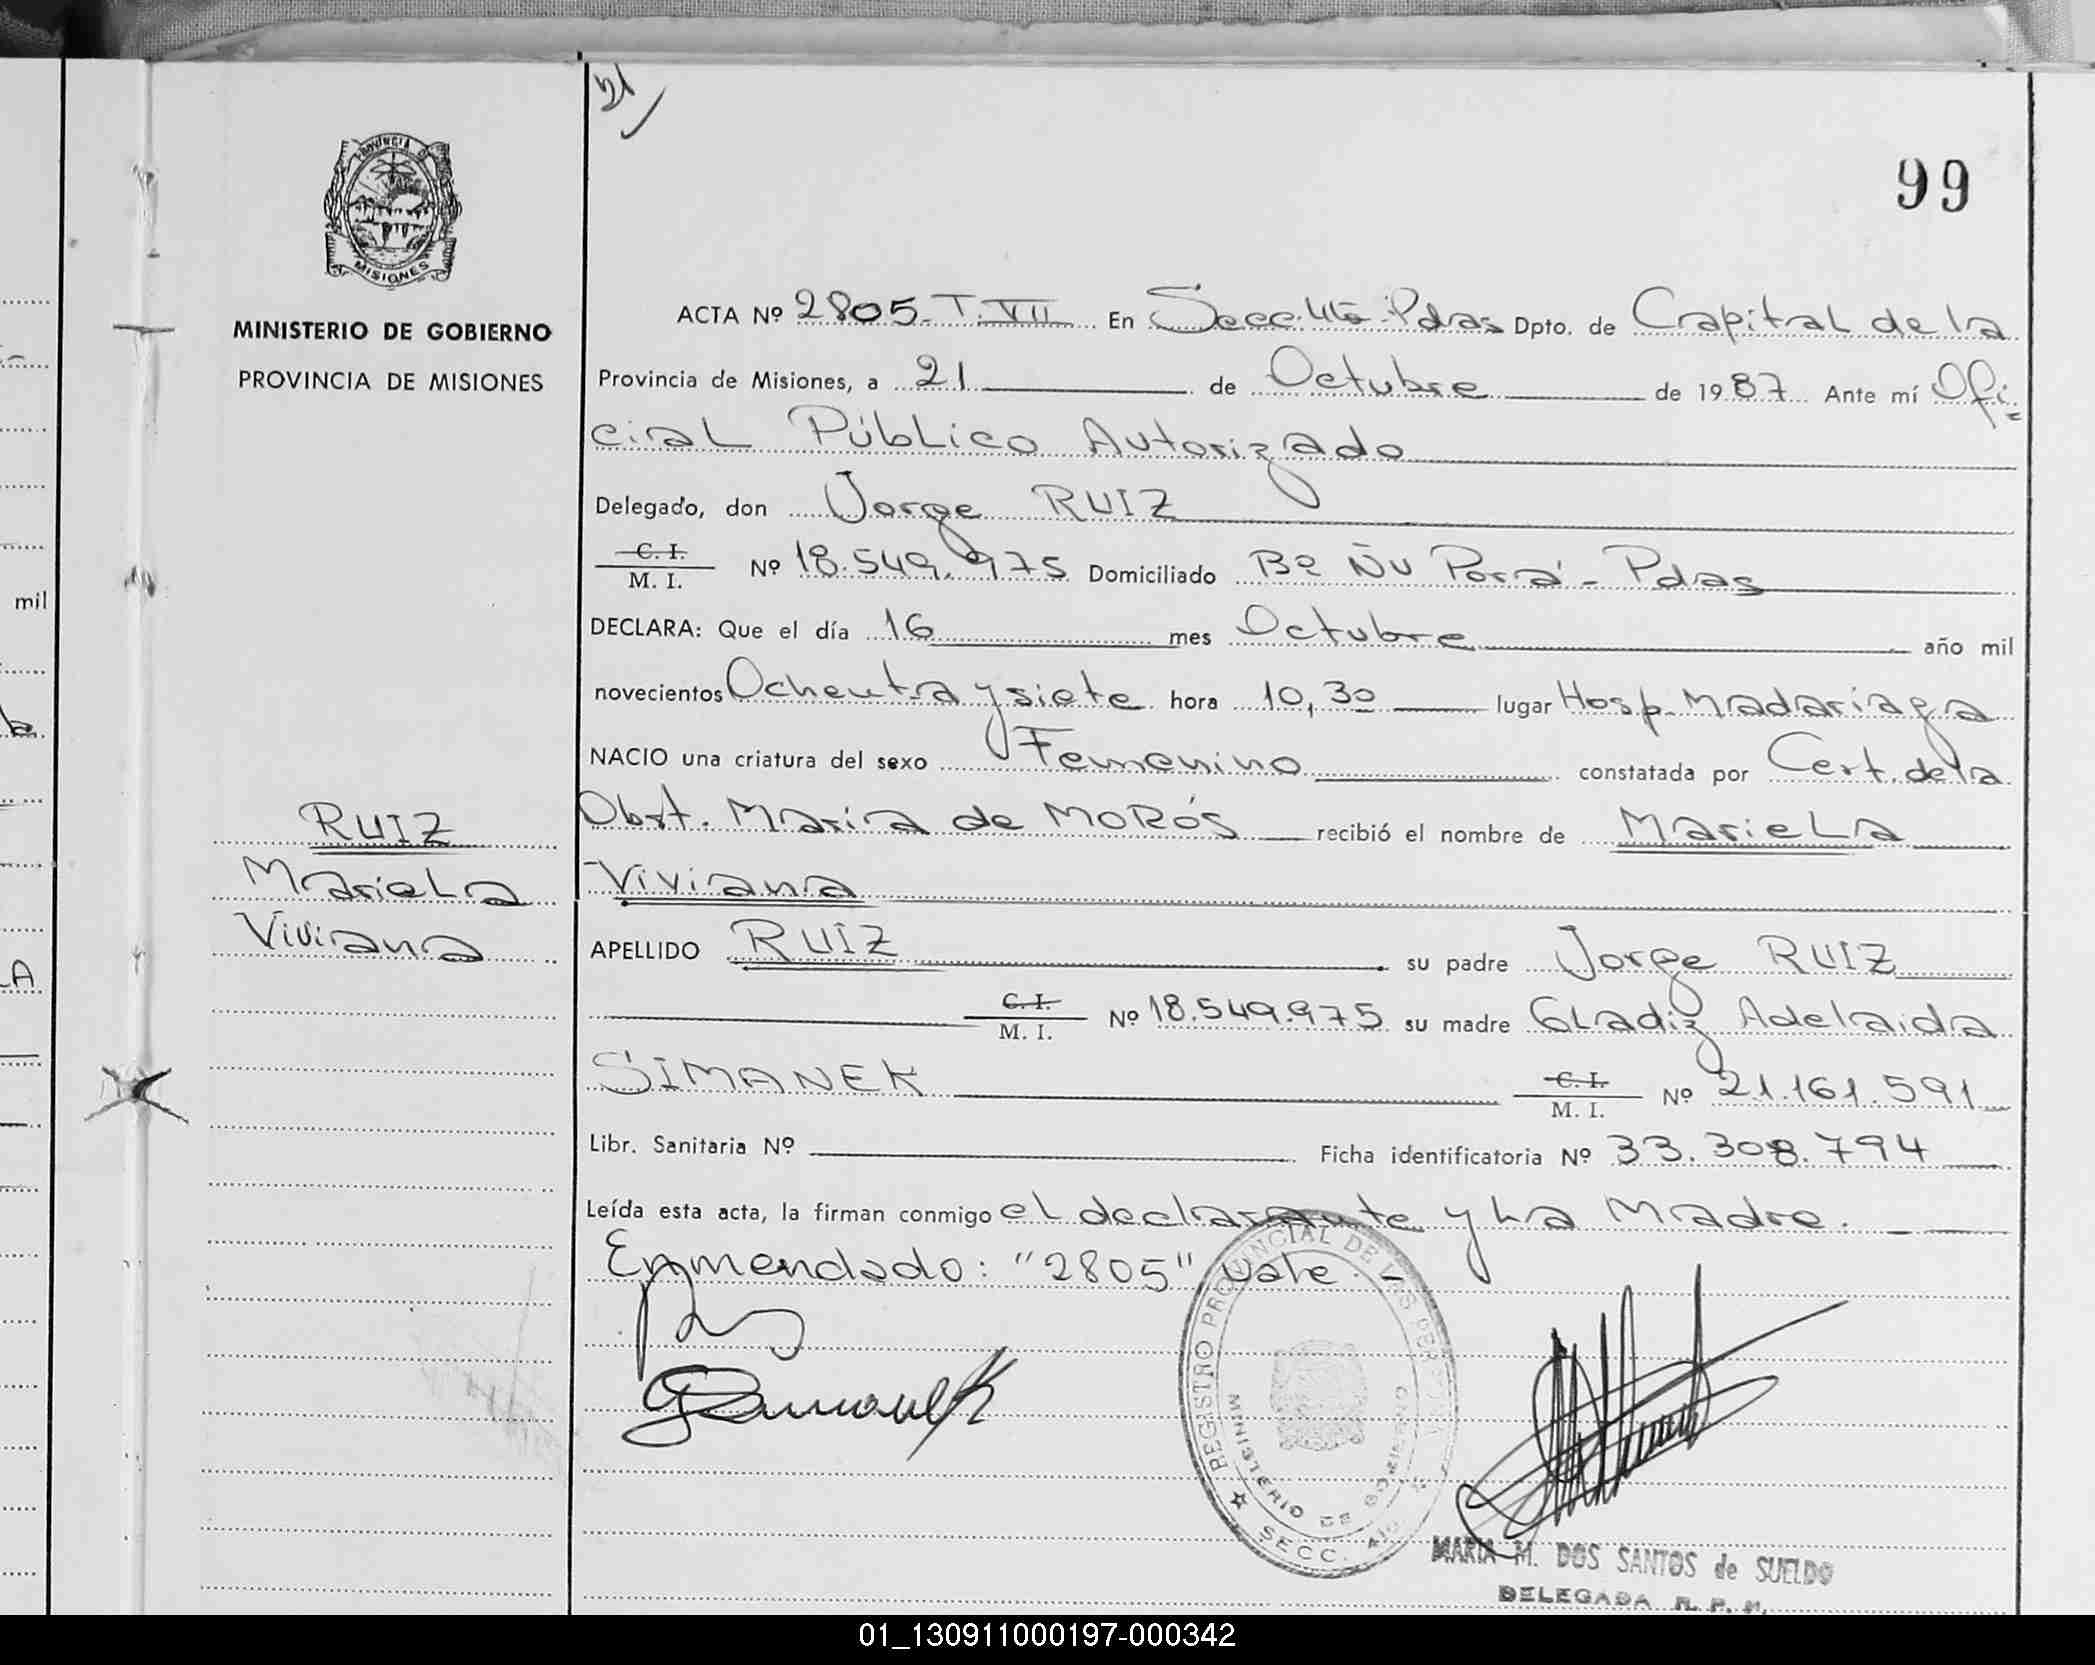 99
PROVINCIA DE
MISIONES
MINISTERIO DE GOBIERNO
PROVINCIA DE MISIONES
ACTA Nº 2805-T.VII En Secc. 4ta Pdas Dpto. de Capital de la
Provincia de Misiones, a 21 de Octubre de 1987 Ante mí Ofi=
cial Público Autorizado
Delegado, don Jorge RUIZ
C. I.
M. I. Nº 18.549.975 Domiciliado Bº Ñu Porá - Pdas
DECLARA: Que el día 16 mes Octubre año mil
novecientos Ochenta y siete hora 10,30 lugar Hosp. Madariaga
NACIO una criatura del sexo Femenino constatada por Cert. de la
Obst. Maria de MORÓS recibió el nombre de Mariela
Viviana
RUIZ
Mariela
Viviana
APELLIDO RUIZ su padre Jorge RUIZ
C. I.
M. I. Nº 18.549.975 su madre Gladiz Adelaida
SIMANEK C. I.
M. I. Nº 21.161.591
Libr. Sanitaria Nº Ficha identificatoria Nº 33.308.794
Leída esta acta, la firman conmigo el declarante y la Madre.
Enmendado: "2805" vale. -
GSimanek
REGISTRO PROVINCIAL DE LAS PERSONAS
MINISTERIO DE GOBIERNO
SECC. 4ta
MARIA M. DOS SANTOS de SUELDO
DELEGADA R. P. M.
mil
la
LA
01_130911000197-000342